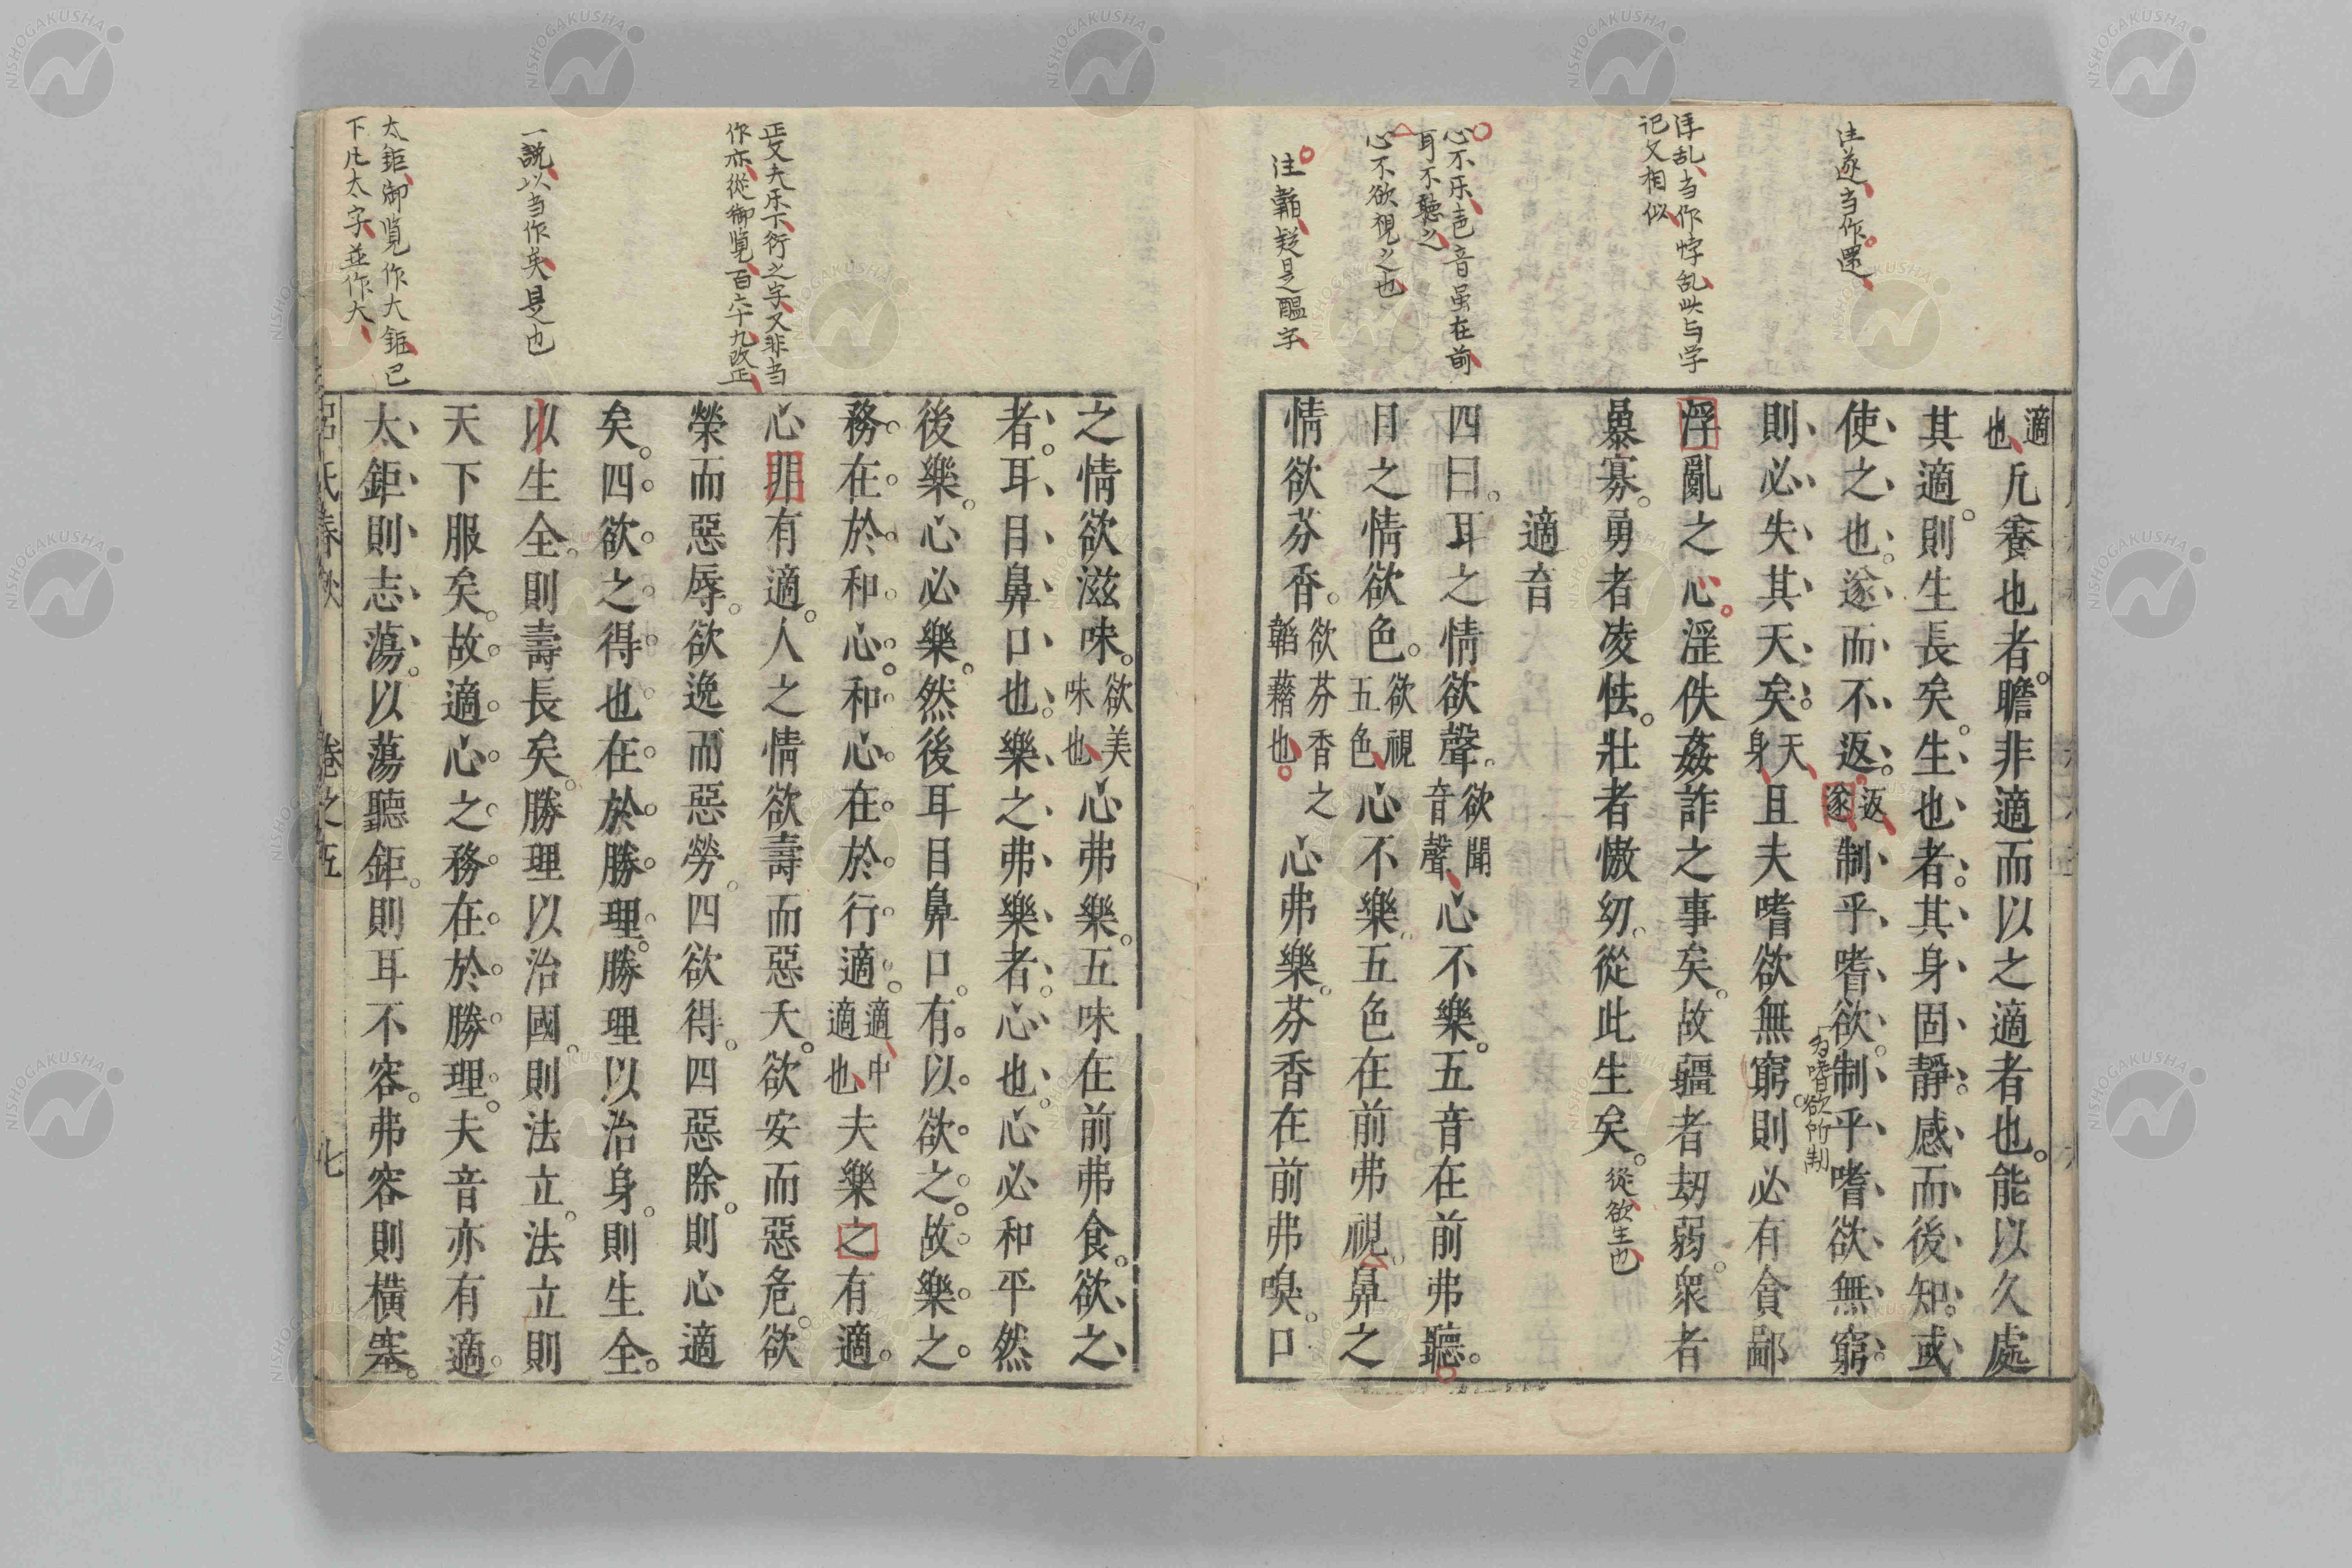 注遂当作還
浮乱当作悖乱此与学
记文相似
心不乐音音虽在前
耳不聽之
心不欲視之也
注韜疑是醞字
適也凡養也者瞻非適而以之適者也能以久處
其適則生長矣生也者其身固靜感而後知或
使之也遂而不返返遂制乎嗜欲制乎嗜欲無窮
為嗜欲所制
則必失其天矣天身且夫嗜欲無窮則必有貪鄙
浮亂之心淫佚姦詐之事矣故彊者劫弱衆者
暴寡勇者凌怯壯者慠幼從此生矣從欲生也
適音
四曰耳之情欲聲欲聞音聲心不樂五音在前弗聽
目之情欲色欲視五色心不樂五色在前弗視鼻之
情欲芬香欲芬香之韜藉也心弗樂芬香在前弗嗅口
正文夫乐下衍之字又非当
作亦從御覧百六十九改正
一說以当作矣是也
太鉅御覧作大鉅已
下凡太字並作大
之情欲滋味欲美味也心弗樂五味在前弗食欲之
者耳目鼻口也樂之弗樂者心也心必和平然
後樂心必樂然後耳目鼻口有以欲之故樂之
務在於和心和心在於行適適中適也夫樂之有適
心非有適人之情欲壽而惡夭欲安而惡危欲
榮而惡辱欲逸而惡勞四欲得四惡除則心適
矣四欲之得也在於勝理勝理以治身則生全
以生全則壽長矣勝理以治國則法立法立則
天下服矣故適心之務在於勝理夫音亦有適
太鉅則志蕩以蕩聽鉅則耳不容弗容則橫塞
呂氏春秋 卷之五 七